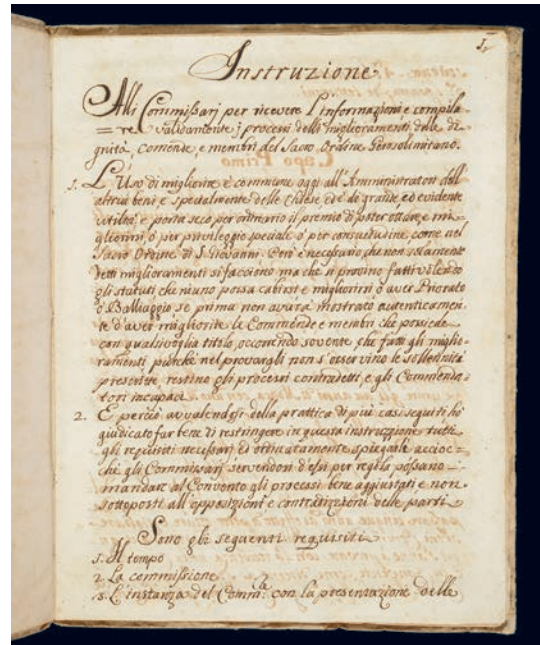 1.
Instruzione
Alli Commissarj per ricevere l'informazioni, e compila
= re validamente i processi delli miglioramenti delle di
gnità, comende, e membri del Sacro Ordine Gerosolimitano.
1. L'Uso di migliorire è commune oggi all'Amministratori dell'
altrui beni, e spetialmente delle Chiese, ed è di grande, ed evidente
utilità, e porta seco per ordinario il premio di poter ottare, e mi-
gliorirsi ò per privilegio speciale ò per consuetudine, come nel
Sacro Ordine di S. Giovanni. Però è necessario che non solamente
detti miglioramenti si facciono ma che si provino fatti volendo
gli statuti che niuno possa cabirsi è migliorirsi ò aver Priorato
ò Balliaggio se prima non averà mostrato autenticamen
te d'aver migliorite le Commende e membri che possiede
con qualsivoglia titolo, occorrendo sovente che fatti gli miglio-
ramenti purche nel provargli non s'osservino le sollennità
prescritte, restino gli processi contradetti, e gli Commenda=
tori incapaci.
2. E perciò avvalendosi della prattica di più casi seguiti hò
giudicato far bene di restringere in questa instruzzione tutti
gli requisiti necessarj ed ordinatamente spiegarli accioc=
che gli Commissarj servendosi d'essi per regola possano
mandare al Convento gli processi bene aggiustati e non
sottoposti all'opposizioni e contradizzioni delle parti
Sono gli seguenti requisiti
1. Il tempo
2. La commissione
3. L'instanza del Comm. con la presentazione delle